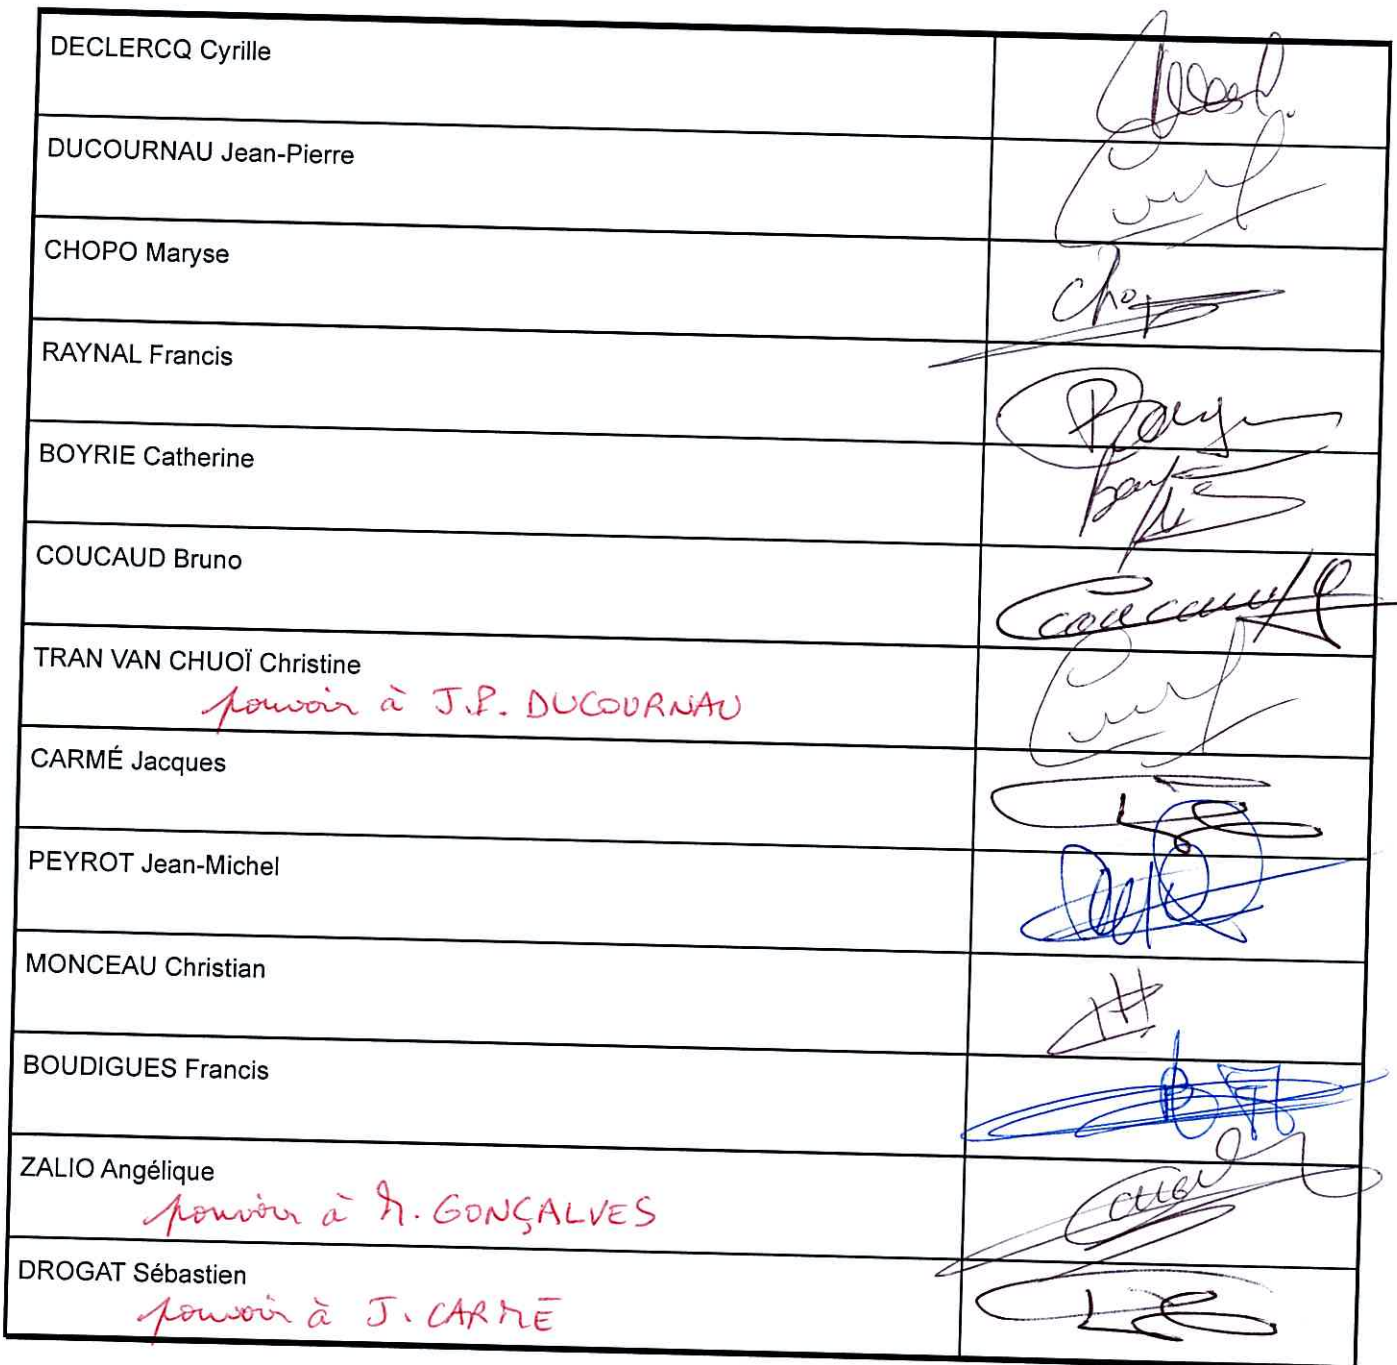 DECLERCQ Cyrille
DUCOURNAU Jean-Pierre
CHOPO Maryse
RAYNAL Francis
BOYRIE Catherine
COUCAUD Bruno
TRAN VAN CHUOÏ Christine
pouvoir à J.P. DUCOURNAU
CARMÉ Jacques
PEYROT Jean-Michel
MONCEAU Christian
BOUDIGUES Francis
ZALIO Angélique
pouvoir à M. GONÇALVES
DROGAT Sébastien
pouvoir à J. CARMÉ